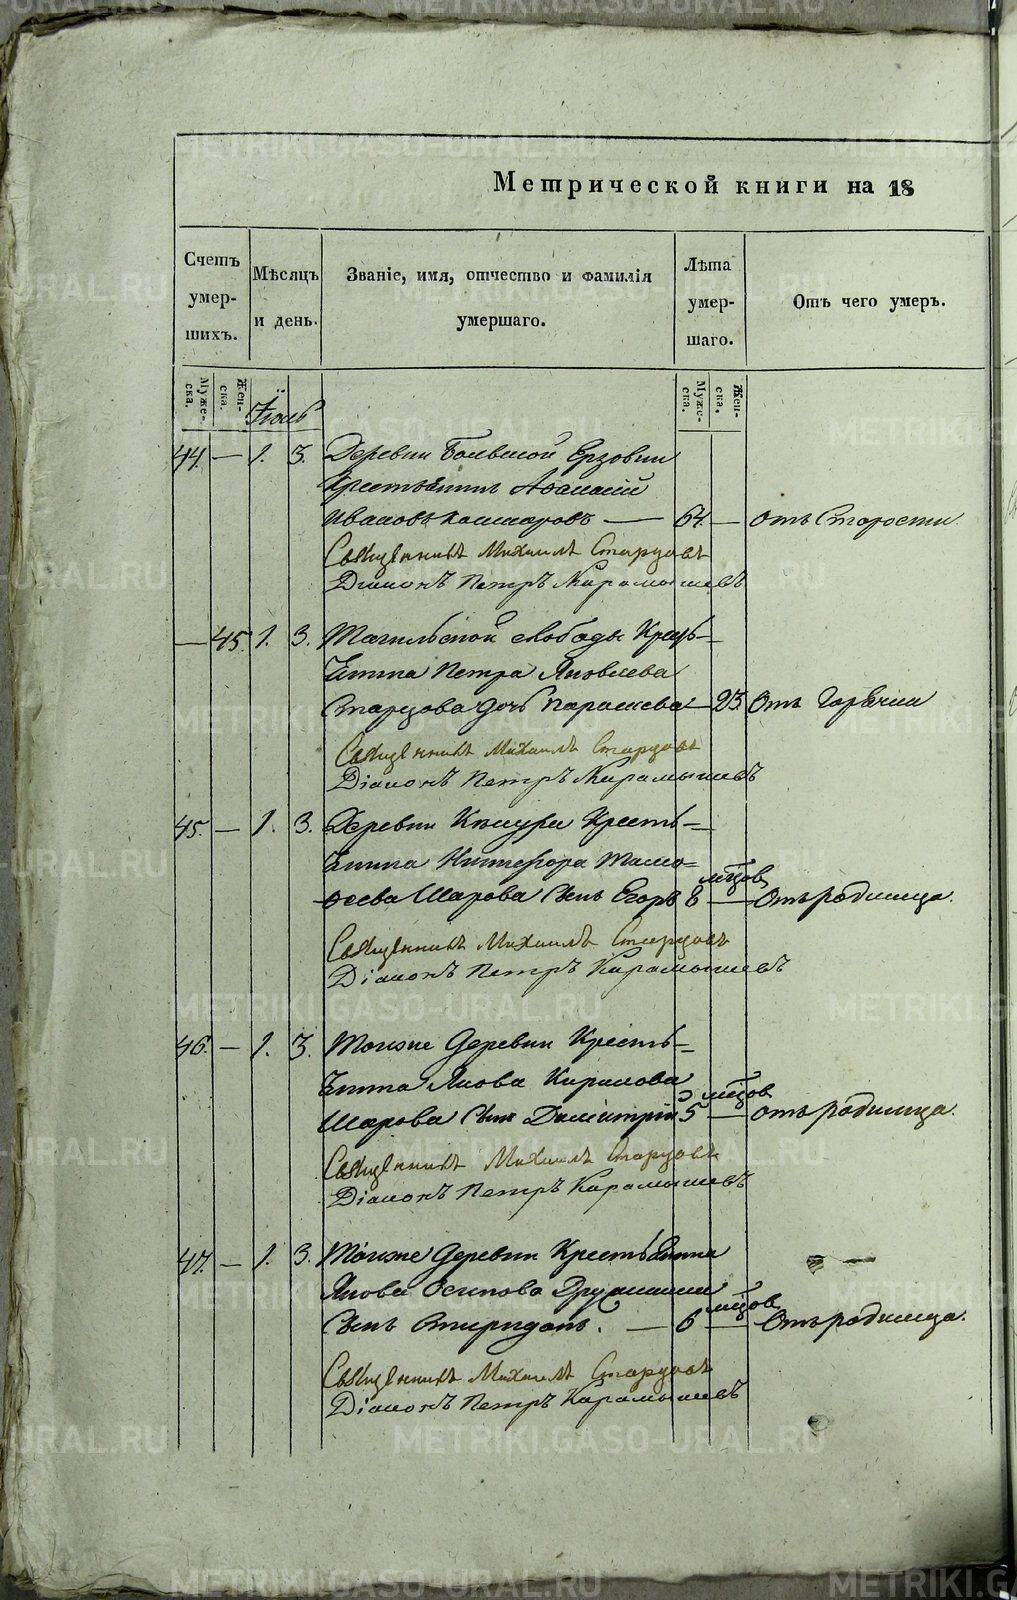 Метрической книги на 18
Счетъ умершихъ.
Мѣсяцъ и день.
Званіе, имя, отчество и фамилія умершаго.
Лѣта умершаго.
Отъ чего умеръ.
Мужеска. Женска.
Мужеска. Женска.
44. — 1. 3. Деревни Большой Ерзовки
Крестьянинъ Аѳанасій
Ивановъ — 64. — отъ Старости.
Священникъ Михаилъ Старцовъ
Діаконъ Петръ Карамышевъ
— 45. 1. 3. Тагильской слободы Кресть=
янина Петра Яковлева
Старцова дочь Параскева — 23. Отъ Горячки
Священникъ Михаилъ Старцовъ
Діаконъ Петръ Карамышевъ
45. — 1. 3. Деревни Кресть=
янина Никифора Тимо=
ѳеева Шарова Сынъ Егоръ 8 мѣсцовъ — Отъ родимца.
Священникъ Михаилъ Старцовъ
Діаконъ Петръ Карамышевъ
46. — 1. 3. Тойже Деревни Кресть=
янина Якова Кирилова
Шарова Сынъ Димитрій 5 мѣсцовъ — отъ родимца.
Священникъ Михаилъ Старцовъ
Діаконъ Петръ Карамышевъ
47. — 1. 3. Тойже Деревни Крестьянина
Якова Осипова
Сынъ Спиридонъ. — 6 мѣсцовъ — Отъ родимца.
Священникъ Михаилъ Старцовъ
Діаконъ Петръ Карамышевъ
METRIKI.GASO-URAL.RU